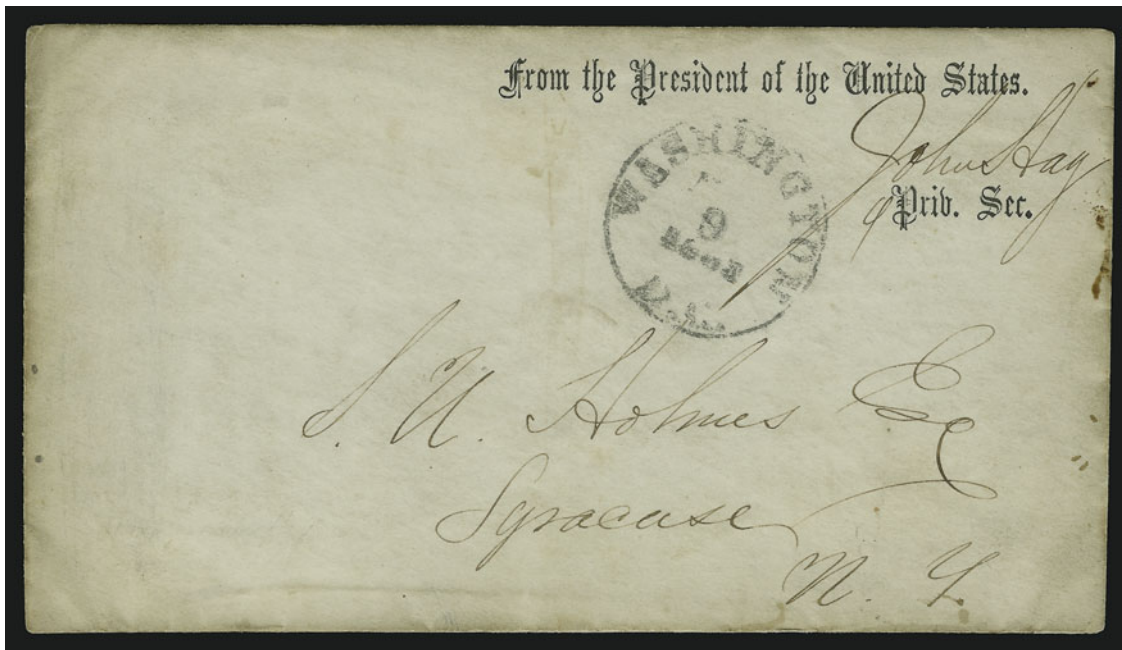 From the President of the United States.
John Hay
Priv. Sec.
WASHINGTON
9
S. N. Holmes Esq
Syracuse
N. Y.